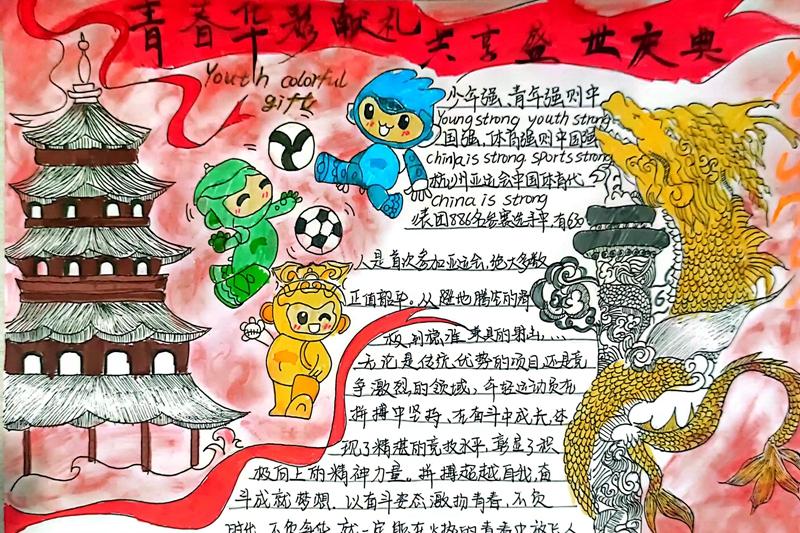 青春华彩献礼 共享盛世庆典
Youth colorful
gifts
少年强、青年强则中
Young strong youth strong
国强,体育强则中国强
china is strong sports strong
杭州亚运会中国体育代
China is strong
表团886名参赛选手中,有63
人是首次参加亚运会,绝大多数
正值韶华。从
无论是传统优势的项目还是竞
争激烈的领域,年轻运动员在
拼搏中坚持,在奋斗中成长,体
现了精湛的竞技水平,彰显了积
极向上的精神力量。拼搏超越自我,奋
斗成就梦想。以奋斗姿态激扬青春,不负
时代,不负华年,就一定能在火热的青春中放飞人